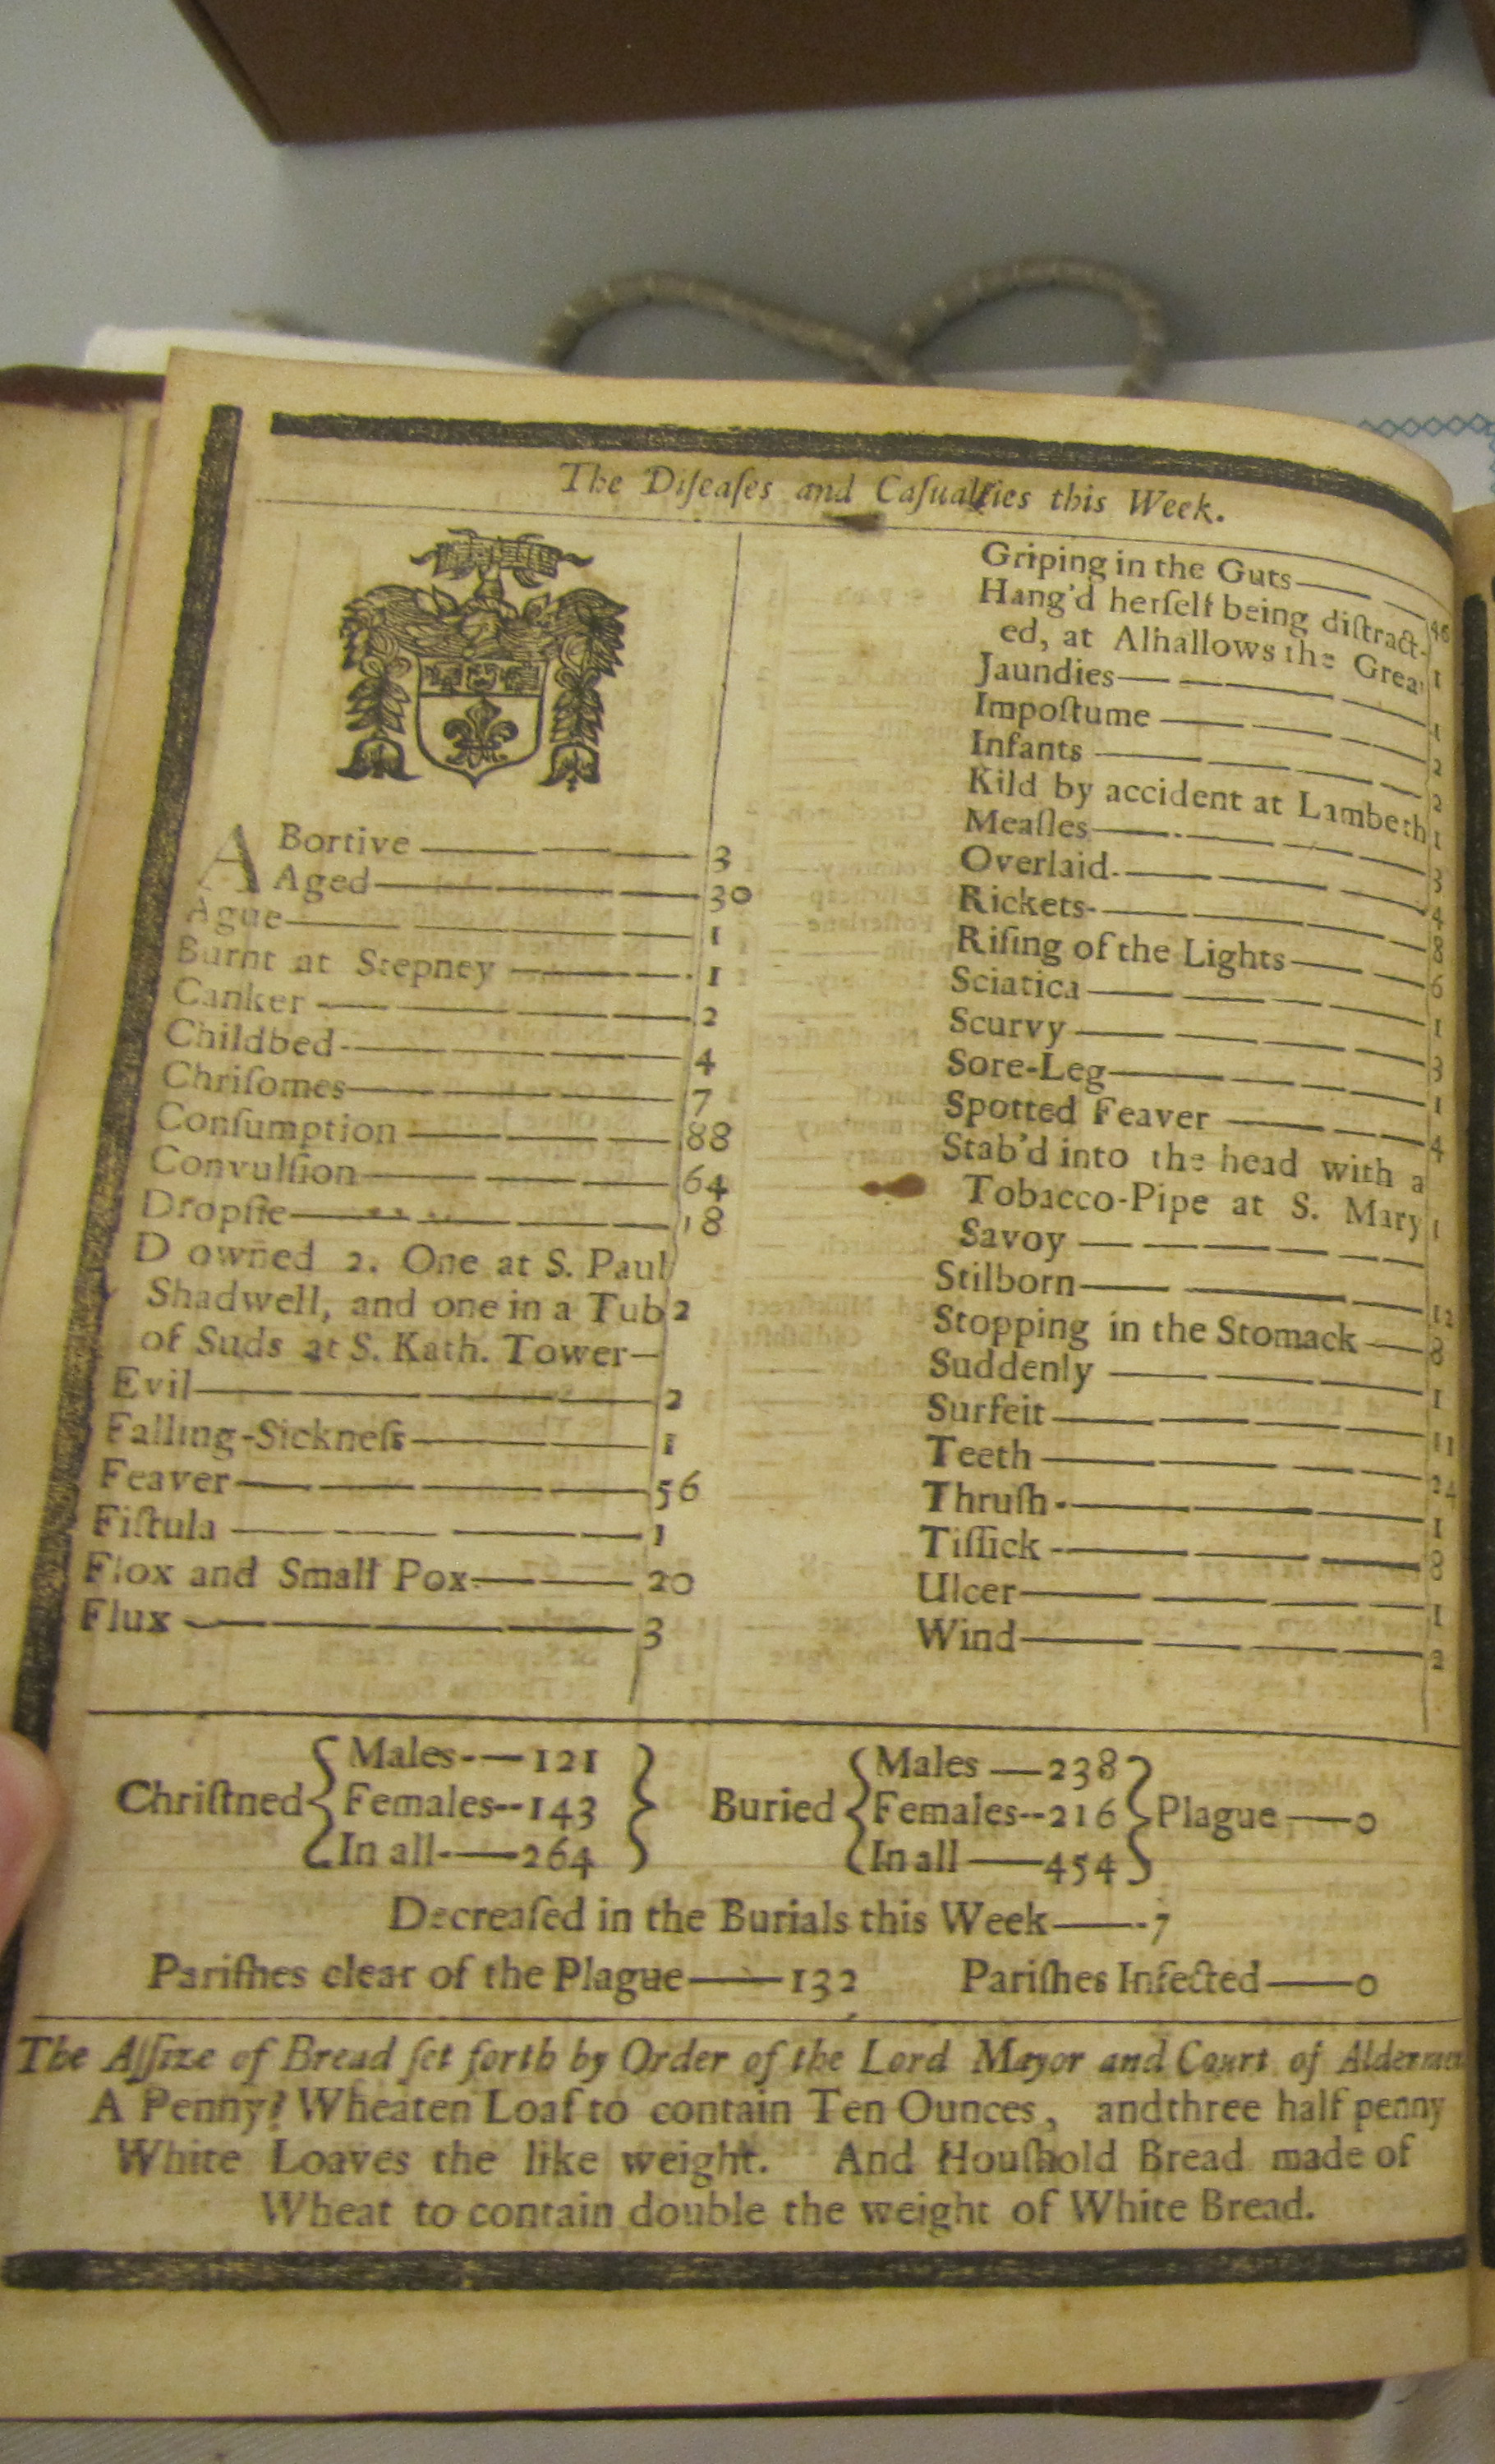 The Diſeaſes and Caſualties this Week.
ABortive 3
Aged 30
Ague 1
Burnt at Stepney 1
Canker 2
Childbed 4
Chriſomes 7
Conſumption 88
Convulſion 64
Dropſie 18
D owned 2. One at S. Paul
Shadwell, and one in a Tub 2
of Suds at S. Kath. Tower
Evil 2
Falling-Sickneſs 1
Feaver 56
Fiſtula 1
Flox and Small Pox 20
Flux 3
Griping in the Guts 46
Hang'd herſelf being diſtract-
ed, at Alhallows the Grea 1
Jaundies 1
Impoſtume 2
Infants 2
Kild by accident at Lambeth 1
Meaſles 3
Overlaid 4
Rickets 8
Riſing of the Lights 6
Sciatica 1
Scurvy 3
Sore-Leg 1
Spotted Feaver 4
Stab'd into the head with a
Tobacco-Pipe at S. Mary 1
Savoy
Stilborn 12
Stopping in the Stomack 8
Suddenly 1
Surfeit 11
Teeth 24
Thruſh 1
Tiſſick 8
Ulcer 1
Wind 2
Chriſtned Males 121 Females 143 In all 264
Buried Males 238 Females 216 In all 454
Plague 0
Decreaſed in the Burials this Week 7
Pariſhes clear of the Plague 132 Pariſhes Infected 0
The Aſſize of Bread ſet forth by Order of the Lord Mayor and Court of Aldermen
A Penny Wheaten Loaf to contain Ten Ounces, andthree half penny
White Loaves the like weight. And Houſhold Bread made of
Wheat to contain double the weight of White Bread.